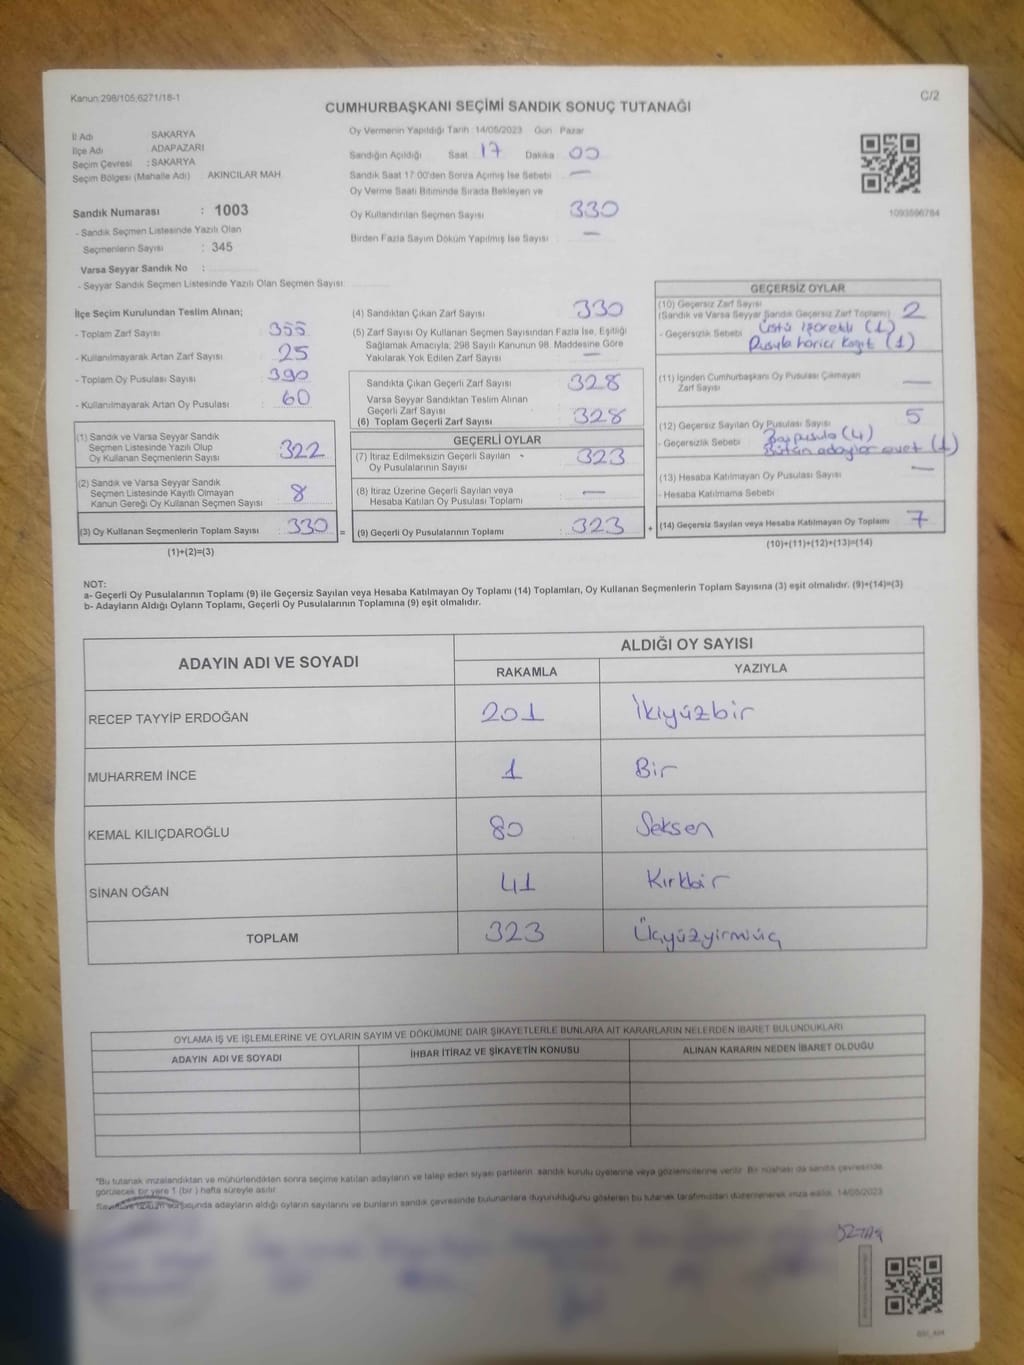 Kanun 298/105,6271/18-1
C/2
CUMHURBAŞKANI SEÇİMİ SANDIK SONUÇ TUTANAĞI
İl Adı SAKARYA
İlçe Adı ADAPAZARI
Seçim Çevresi : SAKARYA
Seçim Bölgesi (Mahalle Adı) AKINCILAR MAH.
Sandık Numarası : 1003
- Sandık Seçmen Listesinde Yazılı Olan
Seçmenlerin Sayısı : 345
Varsa Seyyar Sandık No :
- Seyyar Sandık Seçmen Listesinde Yazılı Olan Seçmen Sayısı:
Oy Vermenin Yapıldığı Tarih :14/05/2023 Gün Pazar
Sandığın Açıldığı Saat 17 Dakika 00
Sandık Saat 17:00'den Sonra Açılmış İse Sebebi —
Oy Verme Saati Bitiminde Sırada Bekleyen ve
Oy Kullandırılan Seçmen Sayısı 330
Birden Fazla Sayım Döküm Yapılmış İse Sayısı —
1093596784
İlçe Seçim Kurulundan Teslim Alınan;
- Toplam Zarf Sayısı 355
- Kullanılmayarak Artan Zarf Sayısı 25
- Toplam Oy Pusulası Sayısı 390
- Kullanılmayarak Artan Oy Pusulası 60
(1) Sandık ve Varsa Seyyar Sandık
Seçmen Listesinde Yazılı Olup
Oy Kullanan Seçmenlerin Sayısı 322
(2) Sandık ve Varsa Seyyar Sandık
Seçmen Listesinde Kayıtlı Olmayan
Kanun Gereği Oy Kullanan Seçmen Sayısı 8
(3) Oy Kullanan Seçmenlerin Toplam Sayısı : 330 =
(1)+(2)=(3)
(4) Sandıktan Çıkan Zarf Sayısı 330
(5) Zarf Sayısı Oy Kullanan Seçmen Sayısından Fazla İse, Eşitliği
Sağlamak Amacıyla, 298 Sayılı Kanunun 98. Maddesine Göre
Yakılarak Yok Edilen Zarf Sayısı —
Sandıkta Çıkan Geçerli Zarf Sayısı 328
Varsa Seyyar Sandıktan Teslim Alınan
Geçerli Zarf Sayısı
(6) Toplam Geçerli Zarf Sayısı 328
GEÇERLİ OYLAR
(7) İtiraz Edilmeksizin Geçerli Sayılan
Oy Pusulalarının Sayısı 323
(8) İtiraz Üzerine Geçerli Sayılan veya
Hesaba Katılan Oy Pusulası Toplamı —
(9) Geçerli Oy Pusulalarının Toplamı : 323 +
GEÇERSİZ OYLAR
(10) Geçersiz Zarf Sayısı
(Sandık ve Varsa Seyyar Sandık Geçersiz Zarf Toplamı) 2
- Geçersizlik Sebebi Üstü İşaretli (1)
Pusula harici kağıt (1)
(11) İçinden Cumhurbaşkanı Oy Pusulası Çıkmayan
Zarf Sayısı —
(12) Geçersiz Sayılan Oy Pusulası Sayısı 5
- Geçersizlik Sebebi Boş pusula (4)
Bütün adaylar evet (1)
(13) Hesaba Katılmayan Oy Pusulası Sayısı —
- Hesaba Katılmama Sebebi
(14) Geçersiz Sayılan veya Hesaba Katılmayan Oy Toplamı 7
(10)+(11)+(12)+(13)=(14)
NOT:
a- Geçerli Oy Pusulalarının Toplamı (9) ile Geçersiz Sayılan veya Hesaba Katılmayan Oy Toplamı (14) Toplamları, Oy Kullanan Seçmenlerin Toplam Sayısına (3) eşit olmalıdır. (9)+(14)=(3)
b- Adayların Aldığı Oyların Toplamı, Geçerli Oy Pusulalarının Toplamına (9) eşit olmalıdır.
ADAYIN ADI VE SOYADI
ALDIĞI OY SAYISI
RAKAMLA YAZIYLA
RECEP TAYYİP ERDOĞAN 201 İkiyüzbir
MUHARREM İNCE 1 Bir
KEMAL KILIÇDAROĞLU 80 Seksen
SİNAN OĞAN 41 Kırkbir
TOPLAM 323 Üçyüzyirmiüç
OYLAMA İŞ VE İŞLEMLERİNE VE OYLARIN SAYIM VE DÖKÜMÜNE DAİR ŞİKAYETLERLE BUNLARA AİT KARARLARIN NELERDEN İBARET BULUNDUKLARI
ADAYIN ADI VE SOYADI İHBAR İTİRAZ VE ŞİKAYETİN KONUSU ALINAN KARARIN NEDEN İBARET OLDUĞU
"Bu tutanak imzalandıktan ve mühürlendikten sonra seçime katılan adayların ve talep eden siyasi partilerin sandık kurulu üyelerine veya gözlemcilerine verilir. Bir nüshası da sandık çevresinde
görülecek bir yere 1 (bir ) hafta süreyle asılır.
sonucunda adayların aldığı oyların sayılarını ve bunların sandık çevresinde bulunanlara duyurulduğunu gösteren bu tutanak tarafımızdan düzenlenerek imza edildi. 14/05/2023